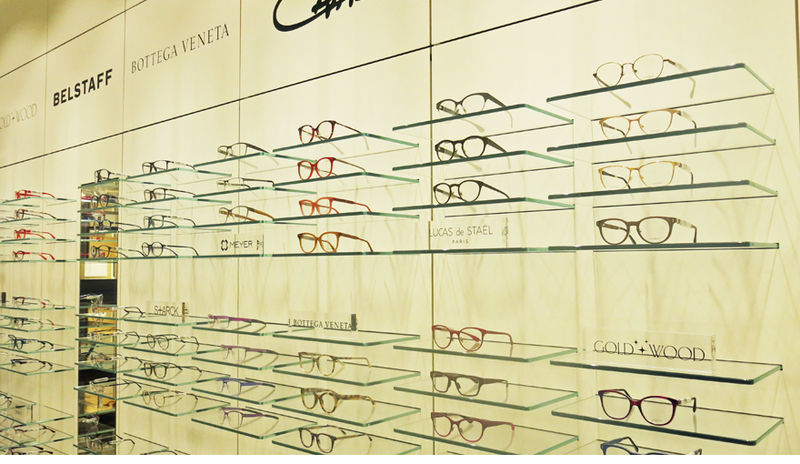 GOLD WOOD
BELSTAFF
BOTTEGA VENETA
MEYER
LUCAS de STAEL
PARIS
STARCK
BOTTEGA VENETA
GOLD WOOD